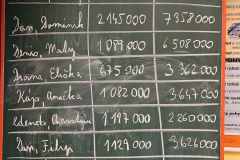 Dan, Dominik 2145000 7358000
Denis, Matěj 1089000 6508000
Diana, Eliška 675000 3362000
Kája, Anička 1082000 3647000
Zdeněk 1197000 2260000
Dan, Filip 1129000 3626000